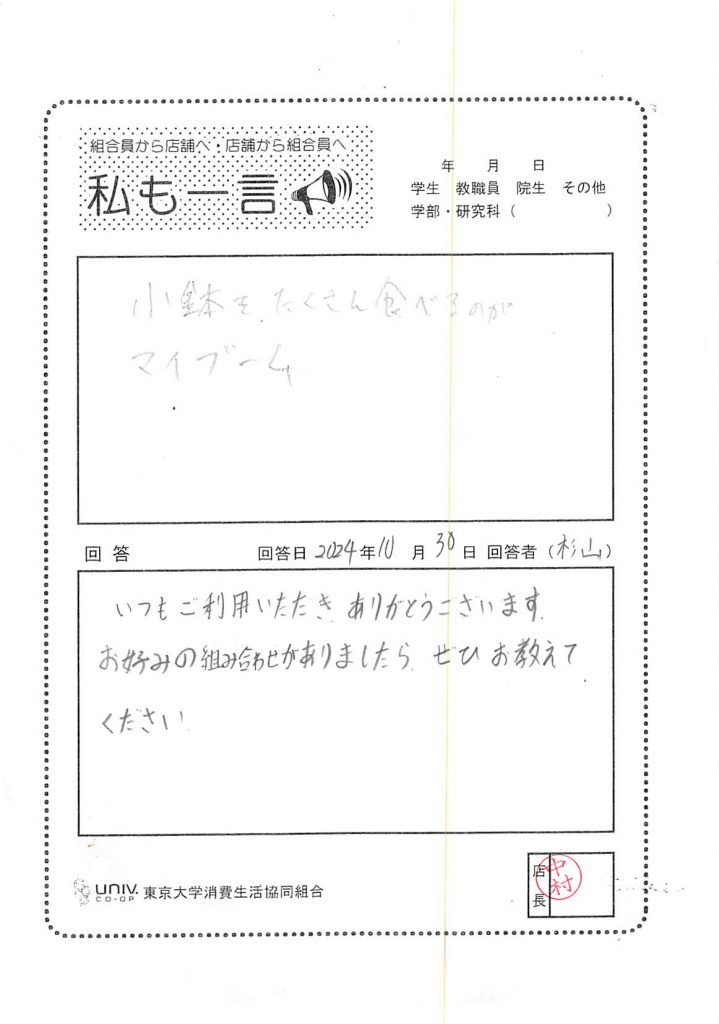 組合員から店舗へ・店舗から組合員へ
私も一言
年 月 日
学生 教職員 院生 その他
学部・研究科( )
小鉢をたくさん食べるのが
マイブーム
回答 回答日 2024年10月30日 回答者(杉山)
いつもご利用いただき、ありがとうございます。
お好みの組み合わせがありましたら、ぜひお教えて
ください
UNIV. CO-OP 東京大学消費生活協同組合
店長
中村